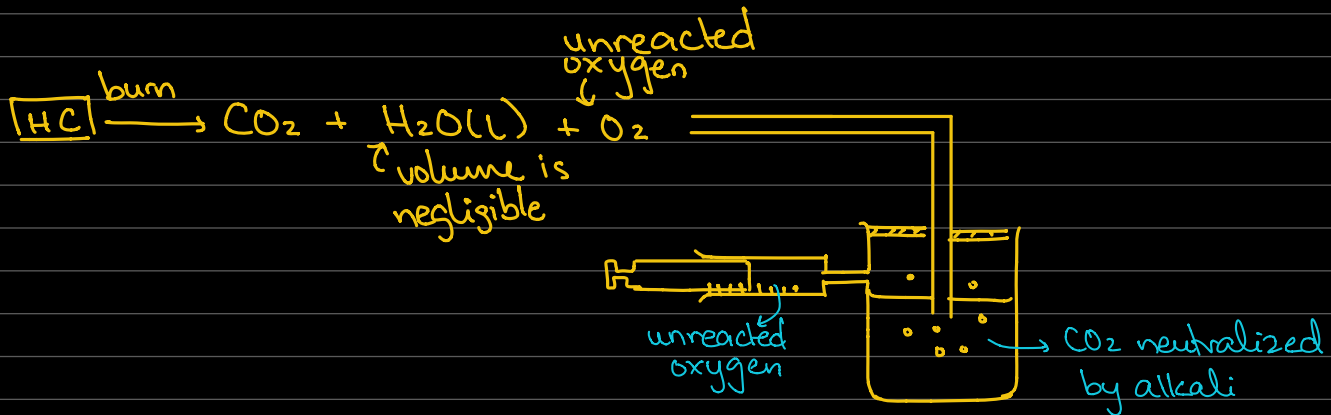 unreacted
oxygen
HC burn → CO₂ + H₂O(l) + O₂
volume is
negligible
unreacted
oxygen
CO₂ neutralized
by alkali